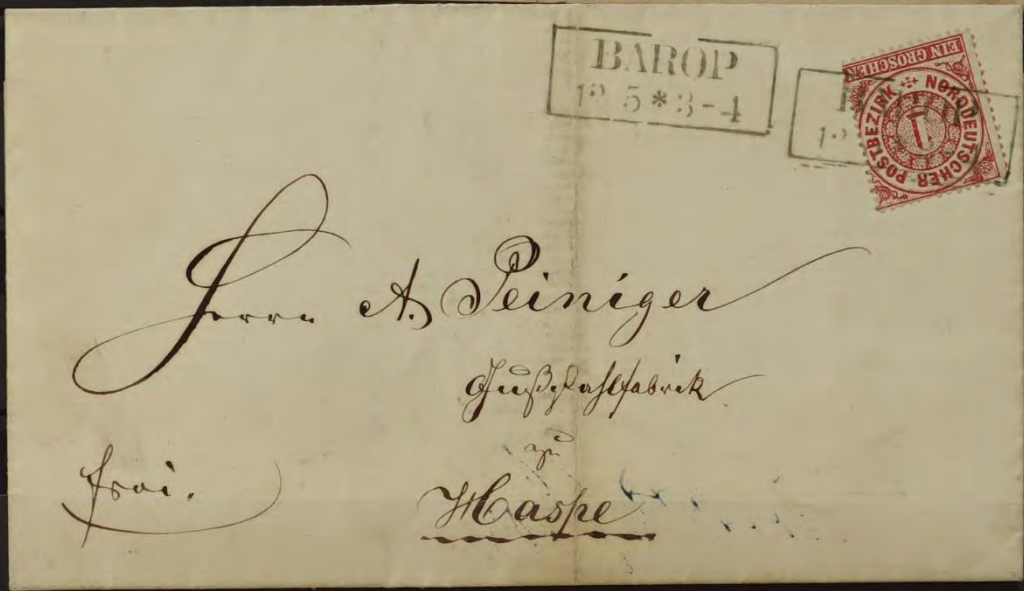 BAROP
12 5 * 3-4
EIN GROSCHEN
NORDDEUTSCHER POSTBEZIRK
1
12
Herrn A. Peiniger
Gußstahlfabrik
zu
Haspe
frei.